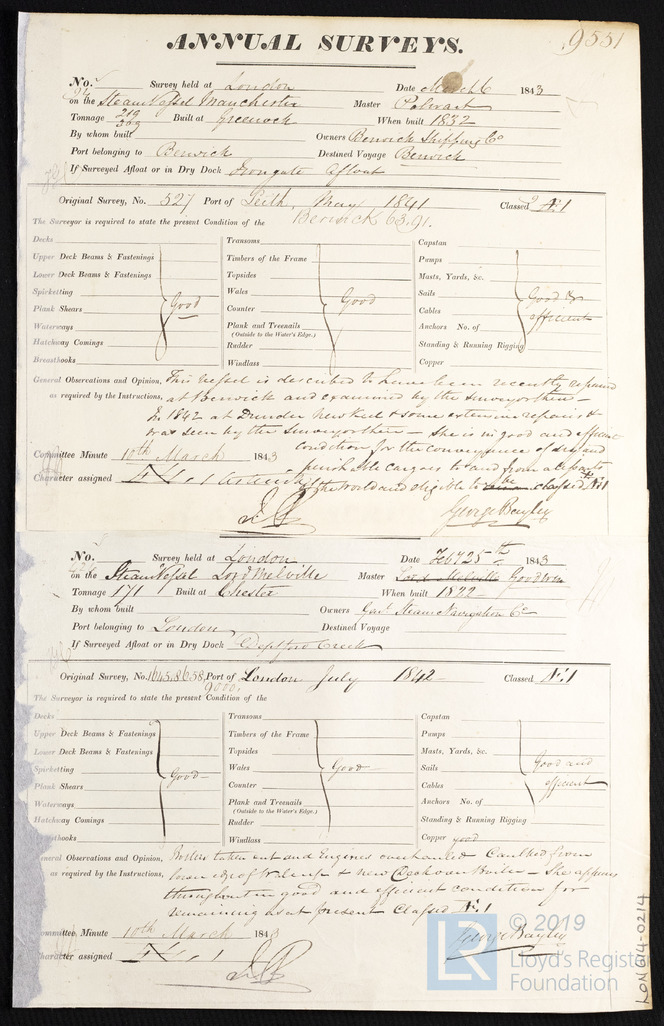 ANNUAL SURVEYS.
9551
No. Survey held at London Date March 6 1843
on the Steam Vessel Manchester Master Palwart
Tonnage 219 Built at Greenock When built 1832
By whom built Owners Berwick Shipping Co
Port belonging to Berwick Destined Voyage Berwick
If Surveyed Afloat or in Dry Dock Irongate Afloat
Original Survey, No. 527 Port of Leith, May 1841 Classed A1
The Surveyor is required to state the present Condition of the Berwick 63.91.
Decks Transoms Capstan
Upper Deck Beams & Fastenings Timbers of the Frame Pumps
Lower Deck Beams & Fastenings Topsides Masts, Yards, &c.
Spirketting Wales Sails Good &
Plank Shears Good Counter Good Cables efficient
Waterways Plank and Treenails Anchors No. of
(Outside to the Water's Edge.)
Hatchway Comings Rudder Standing & Running Rigging
Breasthooks Windlass Copper
General Observations and Opinion, This Vessel is described to have been recently repaired
as required by the Instructions, at Berwick and examined by the surveyor there –
In 1842 at Dundee New Keel & some extensive repairs &
was seen by the surveyor there – she is in good and efficient
Committee Minute 10th March 1843 condition for the conveyance of dry and
perishable cargoes to and from all parts
Character assigned of the World and eligible to be classed A1
George Bayley
No. Survey held at London Date Feby 25th 1843
on the Steam Vessel Lord Melville Master Lord Melville
Tonnage 171 Built at Chester When built 1822
By whom built Owners Genl Steam Navigation Co
Port belonging to London Destined Voyage
If Surveyed Afloat or in Dry Dock Deptford Creek
Original Survey, No. 1645.8658. Port of London July 1842 Classed A1
9000.
The Surveyor is required to state the present Condition of the
Decks Transoms Capstan
Upper Deck Beams & Fastenings Timbers of the Frame Pumps
Lower Deck Beams & Fastenings Topsides Masts, Yards, &c.
Spirketting Good Wales Good Sails Good and
Plank Shears Counter Cables efficient
Waterways Plank and Treenails Anchors No. of
(Outside to the Water's Edge.)
Hatchway Comings Rudder Standing & Running Rigging
Windlass Copper good
General Observations and Opinion, Boilers taken out and Engines overhauled Caulked from
as required by the Instructions, lower edge of Wales up & new Deck over Boiler – She appears
throughout in good and efficient condition for
remaining as at present Classed A1
Committee Minute 10th March 1843 George Bayley
Character assigned
© 2019
LR Lloyd's Register
Foundation
LON614-0214